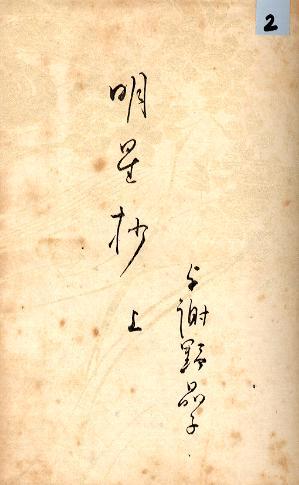 2
明星抄
上
与謝野晶子